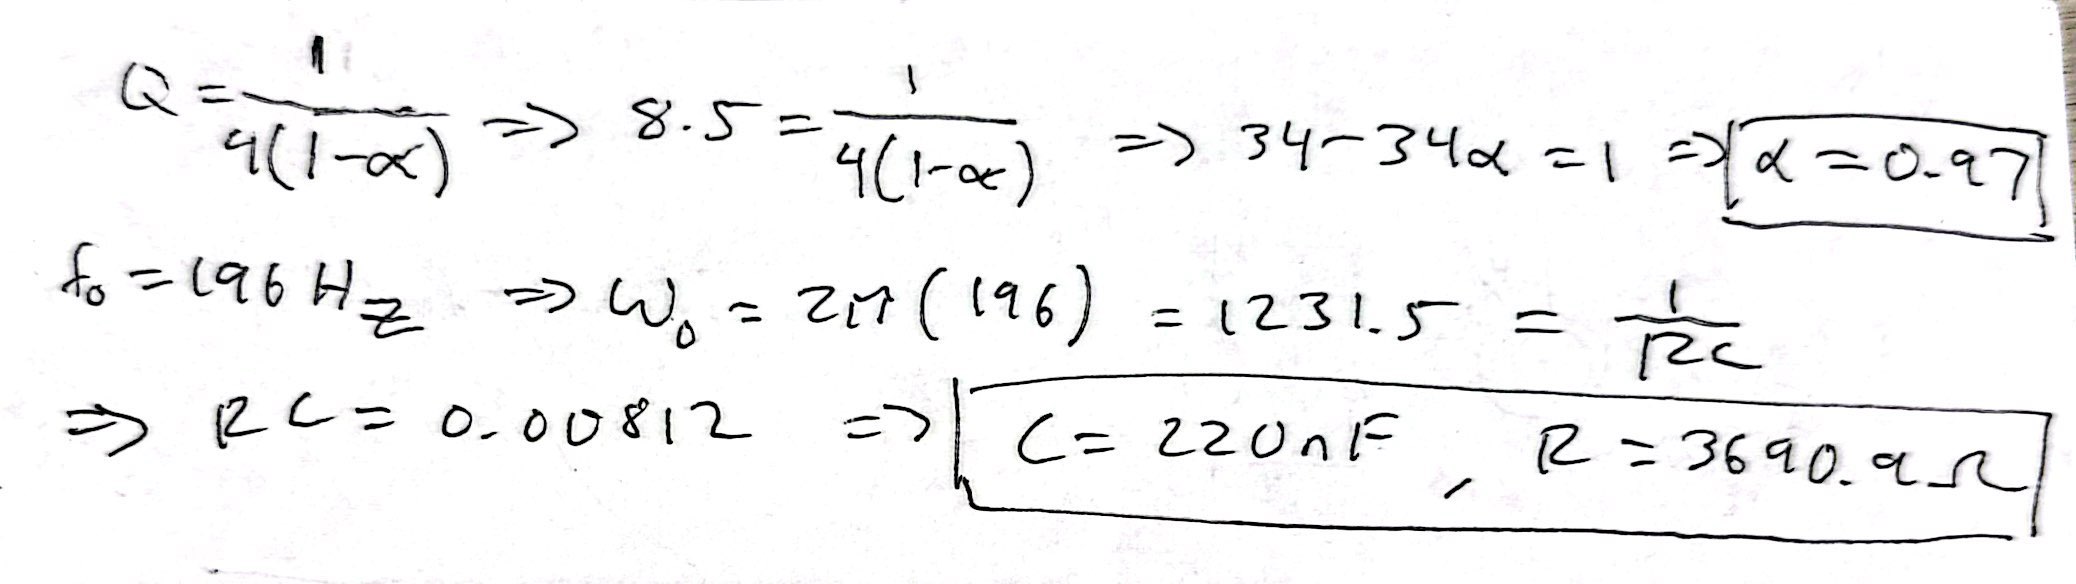 Q = 1/4(1-α) => 8.5 = 1/4(1-α) => 34-34α = 1 => α = 0.97
f₀ = 196 Hz => ω₀ = 2π(196) = 1231.5 = 1/RC
=> RC = 0.00812 => C = 220nF, R = 3690.9Ω